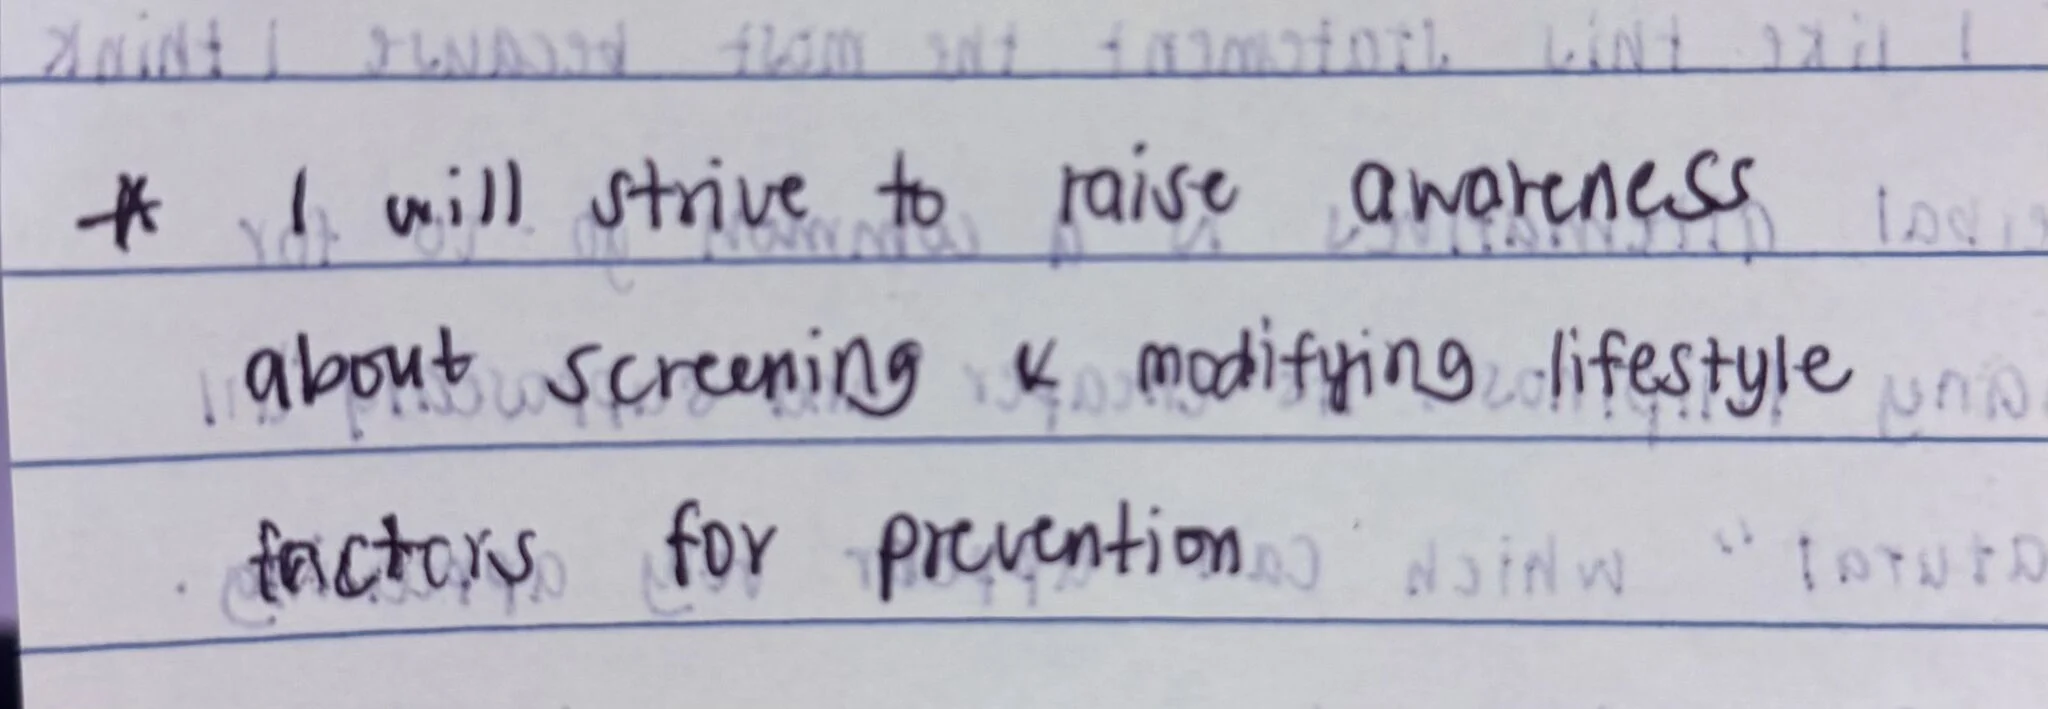 * I will strive to raise awareness
about screening & modifying lifestyle
factors for prevention